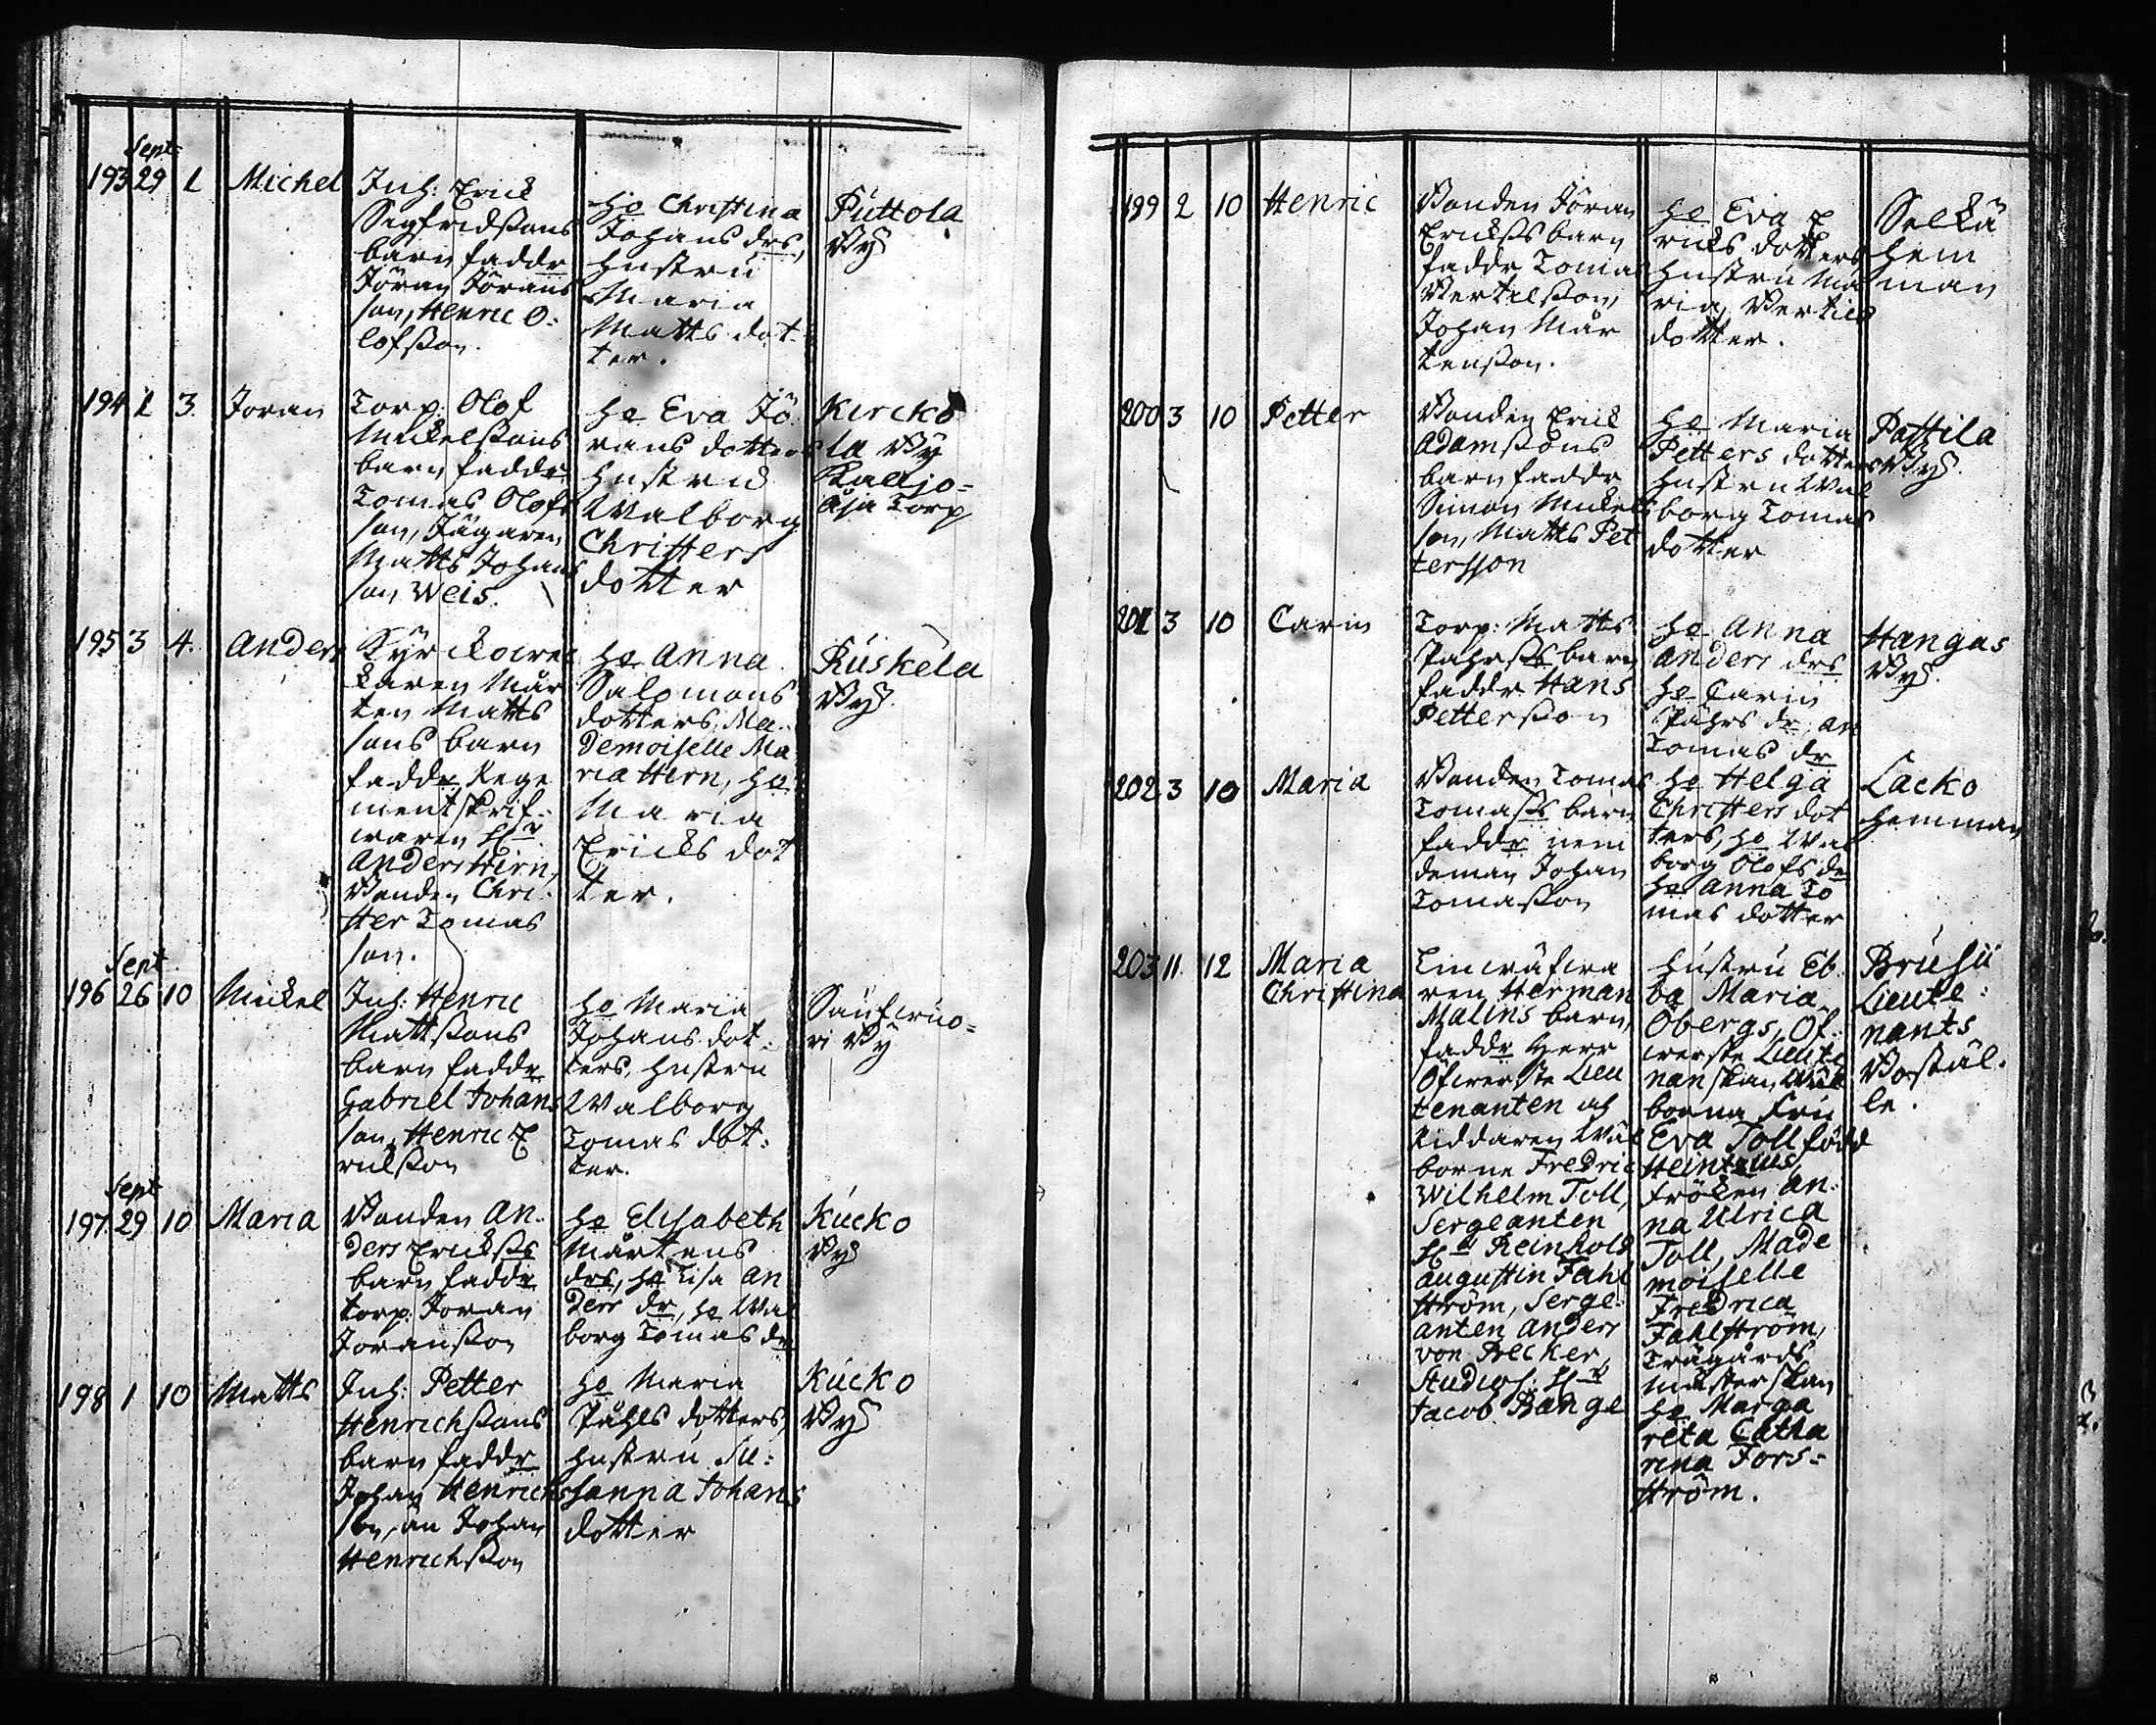 Sept
193 29 1 Michel Inh: Erick
Sigfridssons
barn faddr
Jöran Jörans
son, Henric O-
lofsson.
he Christina
Johans drs,
hustru
Maria
Matts dot-
ter.
Puttola
By
194 2 3. Joran Torp. Olof
Mickelssons
barn faddr
Tomas Olofs
son, Jägaren
Matts Johans
son Weis.
he Eva Jö-
rans dotters
hustru
Walborg
Christers
dotter
Kircko
la By
Kalljo-
äja Torp
195 3 4. Anders Kÿrckowec
karen Mår
ten Matts
sons barn
faddr Rege
mentskrif-
waren Hr
Anders Hirn,
Bonden Chri-
ster Tomas
son.
he Anna
Salomons
dotters, Ma-
demoiselle Ma
ria Hirn, he
Maria
Ericks dot
ter.
Kuskela
By
Sept
196 26 10 Mickel Inh: Henric
Mattssons
barn faddr
Gabriel Johans
son, Henric E
rickson
he Maria
Johans dot-
ters, hustru
Walborg
Tomas dot-
ter.
Säufwuo-
ri By
Sept
197 29 10 Maria Bonden An-
ders Erickss
barn faddr
torp: Joran
Joransson
he Elisabeth
Mårtens
drs, he Lisa An
ders dr, he Wal
borg Tomas dr
Kucko
By
198 1 10 Matts Inh: Petter
Henrichssons
barn faddr
Johan Henrichs
son, än Johan
Henrichsson
he Maria
Påhls dotters,
hustru Su-
sanna Johans
dotter
Kucko
By
199 2 10 Henric Bonden Jöran
Erickss barn
faddr Tomas
Bertilsson,
Johan Mår
tensson.
he Eva E
ricks dotters
hustru Ma
ria Bertils
dotter.
Selkä
hem
man
200 3 10 Petter Bonden Erick
Adamssons
barn faddr
Simon Mickels
son, Matts Pet
tersson
he Maria
Petters dotters
hustru Wal
borg Tomas
dotter
Pattila
By
201 3 10 Carin Torp: Matts
Påhrss barn
faddr Hans
Pettersson
he Anna
Anders drs
he Carin
Påhrs dr, An
Tomas dr
Hangas
By
202 3 10 Maria Bonden Tomas
Tomass barn
faddr nem
deman Johan
Tomasson
he Helga
Christers dot
ters, he Wal
borg Olofs dr
he Anna To
mas dotter
Lacko
hemman
203 11 12 Maria
Christina
Linwäfwa
ren Herman
Malins barn,
faddr Herr
Öfwerste Lieu
tenanten och
Riddaren Wäl
borne Fredric
Wilhelm Toll,
Sergeanten
Hr Reinhold
Augustin Fahl
ström, Serge-
anten Anders
von Becker,
Studios: Hr
Jacob Bange
hustru Eb-
ba Maria
Öbergs, Öf-
werste Lieute
nanskan Wäl
borna Fru
Eva Toll född
Heintzius,
fröken An-
na Ulrica
Toll, Made
moiselle
Fredrica
Fahlström,
Trägårds
mästerskan
he Marga
reta Catha
rina Fors-
ström.
Brusii
Lieute-
nants
Bostäl-
le.